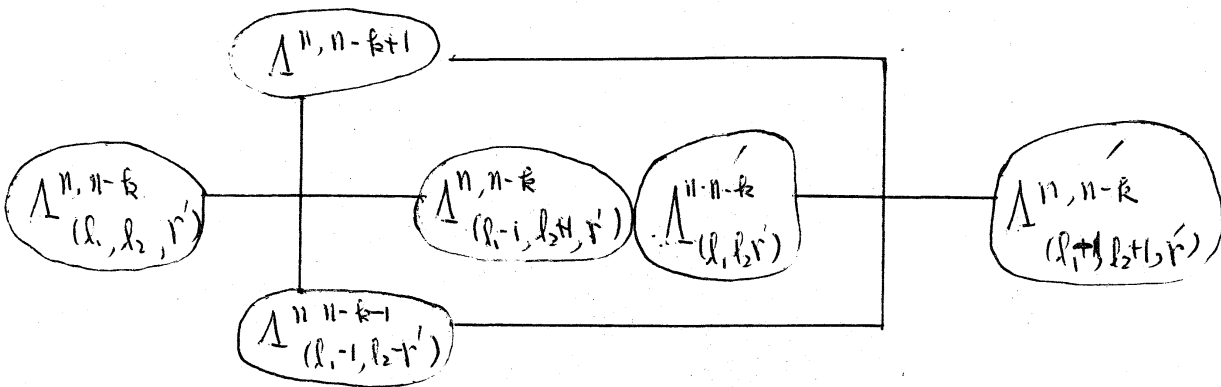 Λ^{n, n-k+1}
Λ^{n, n-k}_{(l₁, l₂, r')}
Λ^{n, n-k}_{(l₁-1, l₂+1, r')}
Λ'^{n-n-k}_{(l₁ l₂ r')}
Λ'^{n, n-k}_{(l₁+1, l₂+1, r')}
Λ^{n n-k-1}_{(l₁-1, l₂-r')}